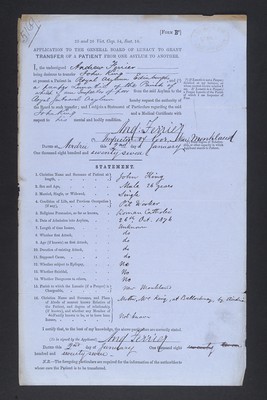 [Form B
APPLICATION TO THE GENERAL BOARD OF LUNACY TO GRANT
TRANSFER OF A PATIENT FROM ONE ASYLUM TO ANOTHER.
I, the undersigned Andrew Ferrier
being desirous to transfer John King
a Patient in Royal Asylum Edinburgh
from the said Asylum to the
Royal Infirmary Asylum hereby request the authority of
the Board to such transfer; and I subjoin a Statement of Particulars regarding the said
John King and a Medical Certificate with
respect to his mental and bodily condition.
And Ferrier
Inspector of Poor New Monkland
Dated at Airdrie this 2nd day of January
One thousand eight hundred and seventy seven
STATEMENT.
1. Christian Name and Surname of Patient at length, John King
2. Sex and Age, Male 26 years
3. Married, Single, or Widowed, Single
4. Condition of Life, and Previous Occupation (if any),
5. Religious Persuasion, so far as known, Roman Catholic
6. Date of Admission into Asylum, 26th Oct. 1876
7. Length of time Insane, Unknown
8. Whether first Attack, do
9. Age (if known) on first Attack, do
10. Duration of existing Attack, do
11. Supposed Cause, do
12. Whether subject to Epilepsy, No
13. Whether Suicidal, No
14. Whether Dangerous to others, No
15. Parish to which the Lunatic (if a Pauper) is Chargeable, New Monkland
16. Christian Name and Surname, and Place of Abode of nearest known Relative of the Patient, and degree of relationship (if known), and whether any Member of his Family known to be, or to have been Insane, Mother, Mrs King, at Ballochney, by Airdrie
Not known
I certify that, to the best of my knowledge, the above particulars are correctly stated.
[To be signed by the Applicant] And Ferrier
Dated this 2nd day of January One thousand eight
hundred and seventy seven
N.B.—The foregoing particulars are required for the information of the authorities to
whose care the Patient is to be transferred.